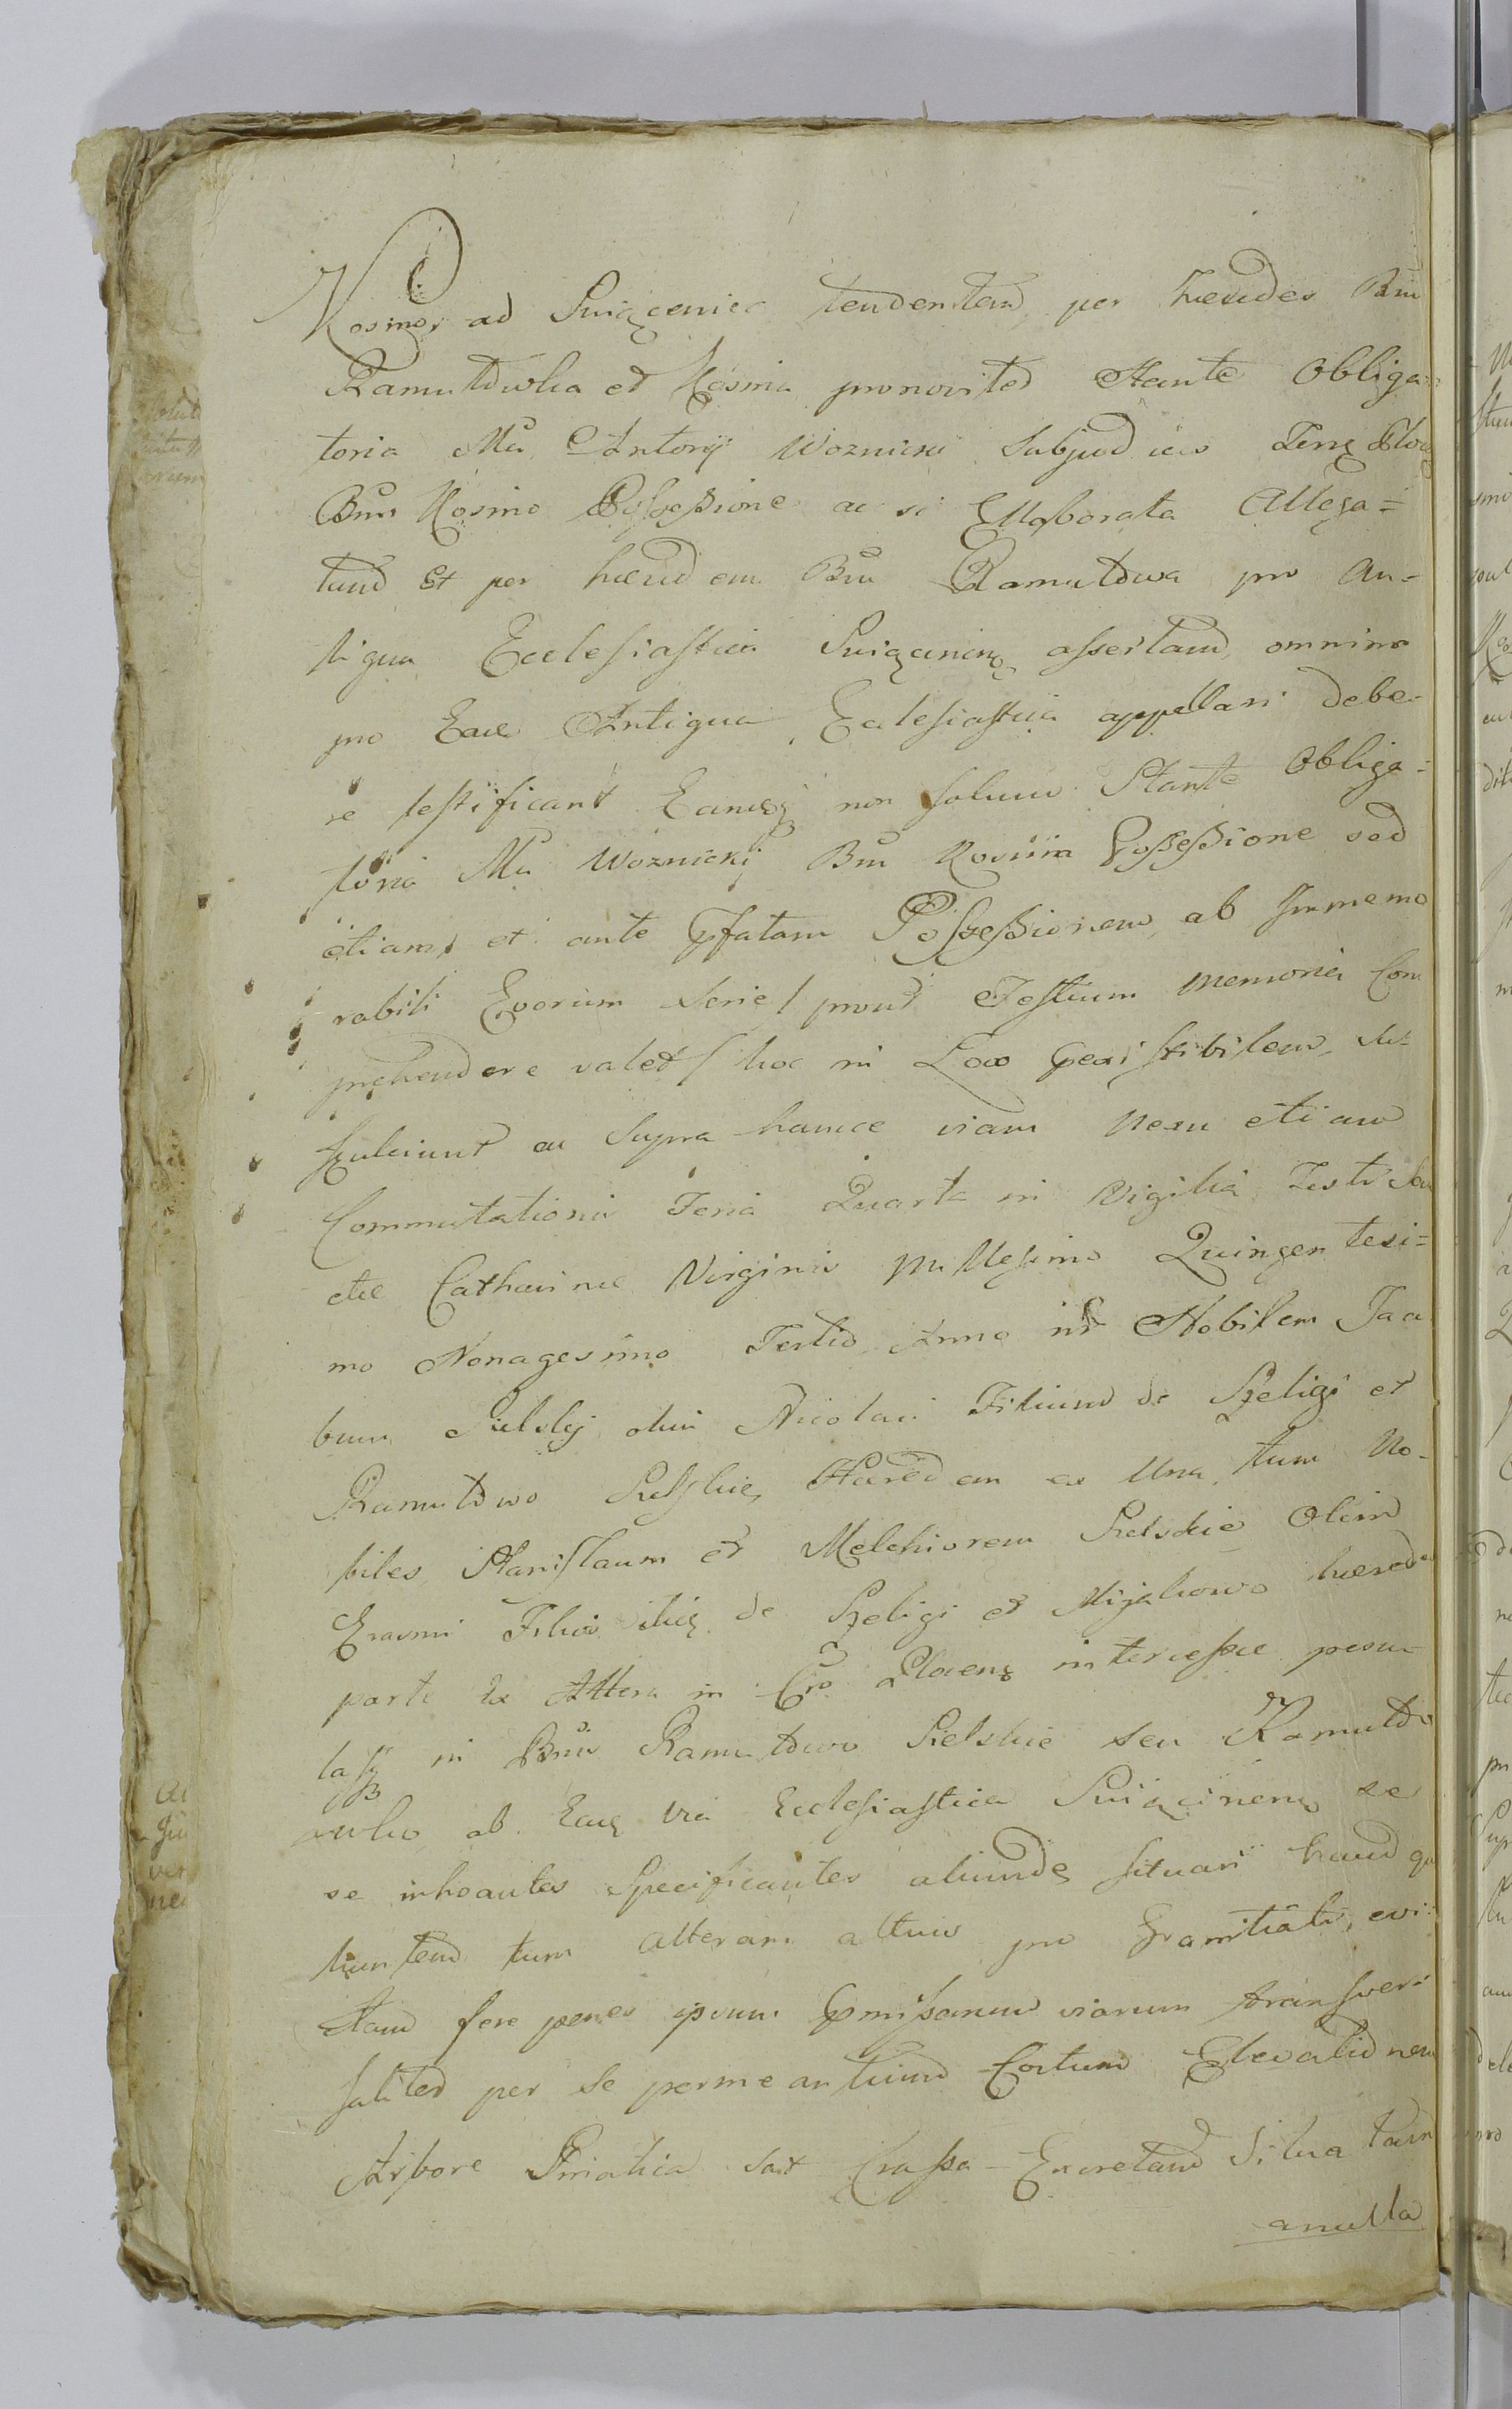 Kosmo ad Swięceniec tendentem, per hæredes Bnu
Ramutowka et Kosmia promovited Stante Obliga-
toria Mci Antonij Woznicki Subjudicis Terræ Ploc
Bnis Kosmo Possessione ac si Ellaborata Allega=
tum Et per hæredem Bnu Ramutowa pro An-
tiqua Ecclesiastica Swięcinens assertam, omnino
pro Eace Antiqua Ecclesiastica appellari debe-
re testificant Eamq non solum Stante Obliga-
toria Mci Woznickij Bnu Kosmia Possessione sed
etiam et ante Pfatam Possessionem, ab Immemo
rabili Evorum Serie / prout Testium memoria Com
prehendere valet / hoc in Loco Existibilem,
fulciunt ac Supra hance viam Nexu etiam
Commutationis Feria Quarta in Vigilia Festi San
ctæ Catharinæ Virginis Millesimo Quingentesi=
mo Nonagesimo Tertio Anno int Nobilem Jaco
bum Sielskij olim Nicolai Filium de Szeligi et
Ramutowo Sielskie, Hæredem ex Una, tum No-
biles, Stanislaum et Melchiorem Sielskie Olim
Erasmi Filios itiq de Szeligi et Migahowo hæredes
parte Ex Altera in Cro Plocens intercessæ
in Bnis Ramutowo Sielskie seu Ramuto
wko, ab Eaq via Ecclesiastica Swięcinens se
se inhoantes Specificantes aliunde situari haud
tum alteram pro Granitiali,
fere penes ipsum viarum transver=
saliter per se permeantium Certum Elevationem
Arbore sat Crassa Excretam situa tam
a nulla